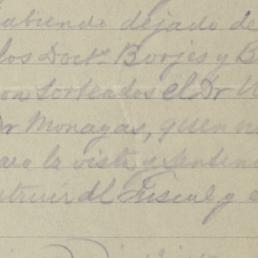 habiendo dejado de
los Docts Borjes y B
on sorteados el Dr
Dr Monagas, quen
para la vista y senten
struir al Fiscal y e